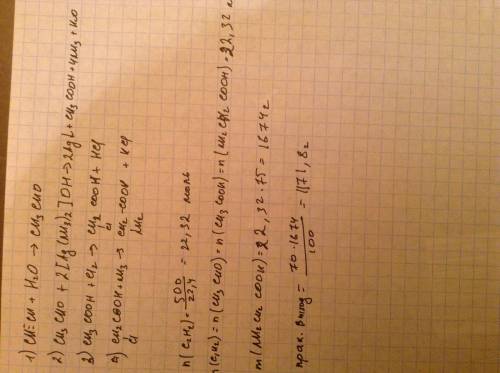 1) CH≡CH + H₂O → CH₃CHO
2) CH₃CHO + 2[Ag(NH₃)₂]OH → 2Ag↓ + CH₃COOH + 4NH₃ + H₂O
3) CH₃COOH + Cl₂ → CH₂COOH + HCl
Cl
4) CH₂COOH + NH₃ → CH₂-COOH + HCl
Cl NH₂
n(C₂H₂) = 500/22,4 = 22,32 моль
n(C₂H₂) = n(CH₃CHO) = n(CH₃COOH) = n(NH₂CH₂COOH) = 22,32
m(NH₂CH₂COOH) = 22,32·75 = 1674г
прак. выход = 70·1674/100 = 1171,8г